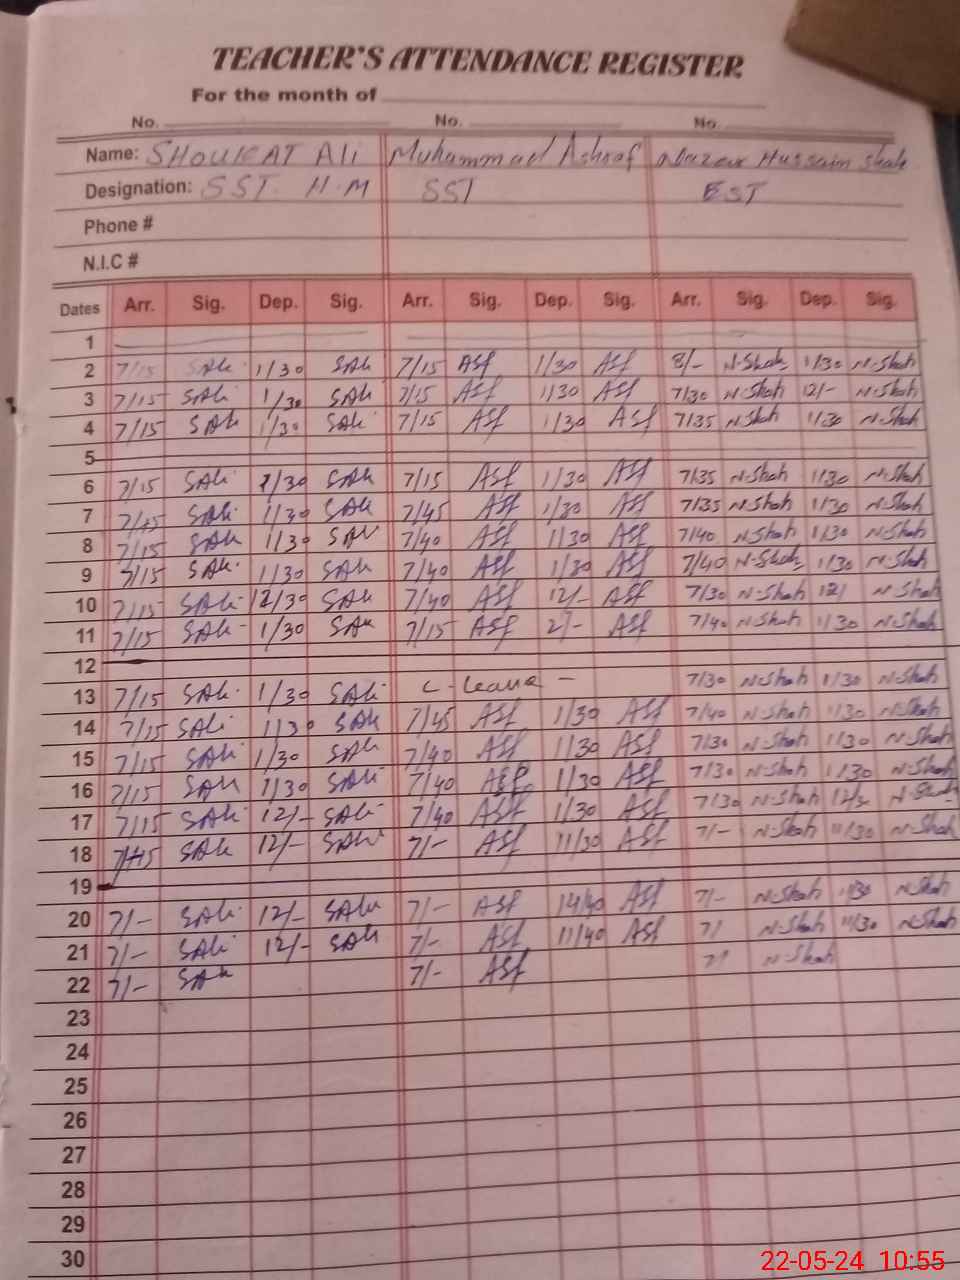 TEACHER'S ATTENDANCE REGISTER
For the month of
No. No. No.
Name: SHOUKAT Ali Muhammad Ashraf Hussain Shah
Designation: SST. H.M SST EST
Phone #
N.I.C #
Dates Arr. Sig. Dep. Sig. Arr. Sig. Dep. Sig. Arr. Sig. Dep. Sig.
1
2 7/15 SAli 1/30 SAli 7/15 Asf 1/30 Asf 8/- N-Shah 1/30 N-Shah
3 7/15 SAli 1/30 SAli 7/15 Asf 1/30 Asf 7/30 N-Shah 12/- N-Shah
4 7/15 SAli 1/30 SAli 7/15 Asf 1/30 Asf 7/35 N-Shah 1/30 N-Shah
5
6 7/15 SAli 1/30 SAli 7/15 Asf 1/30 Asf 7/35 N-Shah 1/30 N-Shah
7 7/15 SAli 1/30 SAli 7/45 Asf 1/30 Asf 7/35 N-Shah 1/30 N-Shah
8 7/15 SAli 1/30 SAli 7/40 Asf 1/30 Asf 7/40 N-Shah 1/30 N-Shah
9 7/15 SAli 1/30 SAli 7/40 Asf 1/30 Asf 7/40 N-Shah 1/30 N-Shah
10 7/15 SAli 12/30 SAli 7/40 Asf 12/- Asf 7/30 N-Shah 12/ N-Shah
11 7/15 SAli 1/30 SAli 7/15 Asf 2/- Asf 7/40 N-Shah 1/30 N-Shah
12
13 7/15 SAli 1/30 SAli C-Leave - 7/30 N-Shah 1/30 N-Shah
14 7/15 SAli 1/30 SAli 7/45 Asf 1/30 Asf 7/40 N-Shah 1/30 N-Shah
15 7/15 SAli 1/30 SAli 7/40 Asf 1/30 Asf 7/30 N-Shah 1/30 N-Shah
16 7/15 SAli 1/30 SAli 7/40 Asf 1/30 Asf 7/30 N-Shah 1/30 N-Shah
17 7/15 SAli 12/- SAli 7/40 Asf 1/30 Asf 7/30 N-Shah N-Shah
18 SAli 12/- SAli 7/- Asf 11/30 Asf 7/- N-Shah 11/30 N-Shah
19
20 7/- SAli 12/- SAli 7/- Asf Asf 7/- N-Shah 11/30 N-Shah
21 7/- SAli 12/- SAli 7/- Asf 11/40 Asf 7/ N-Shah 11/30 N-Shah
22 7/- SAli 7/- Asf 7/ N-Shah
23
24
25
26
27
28
29
30
22-05-24 10:55